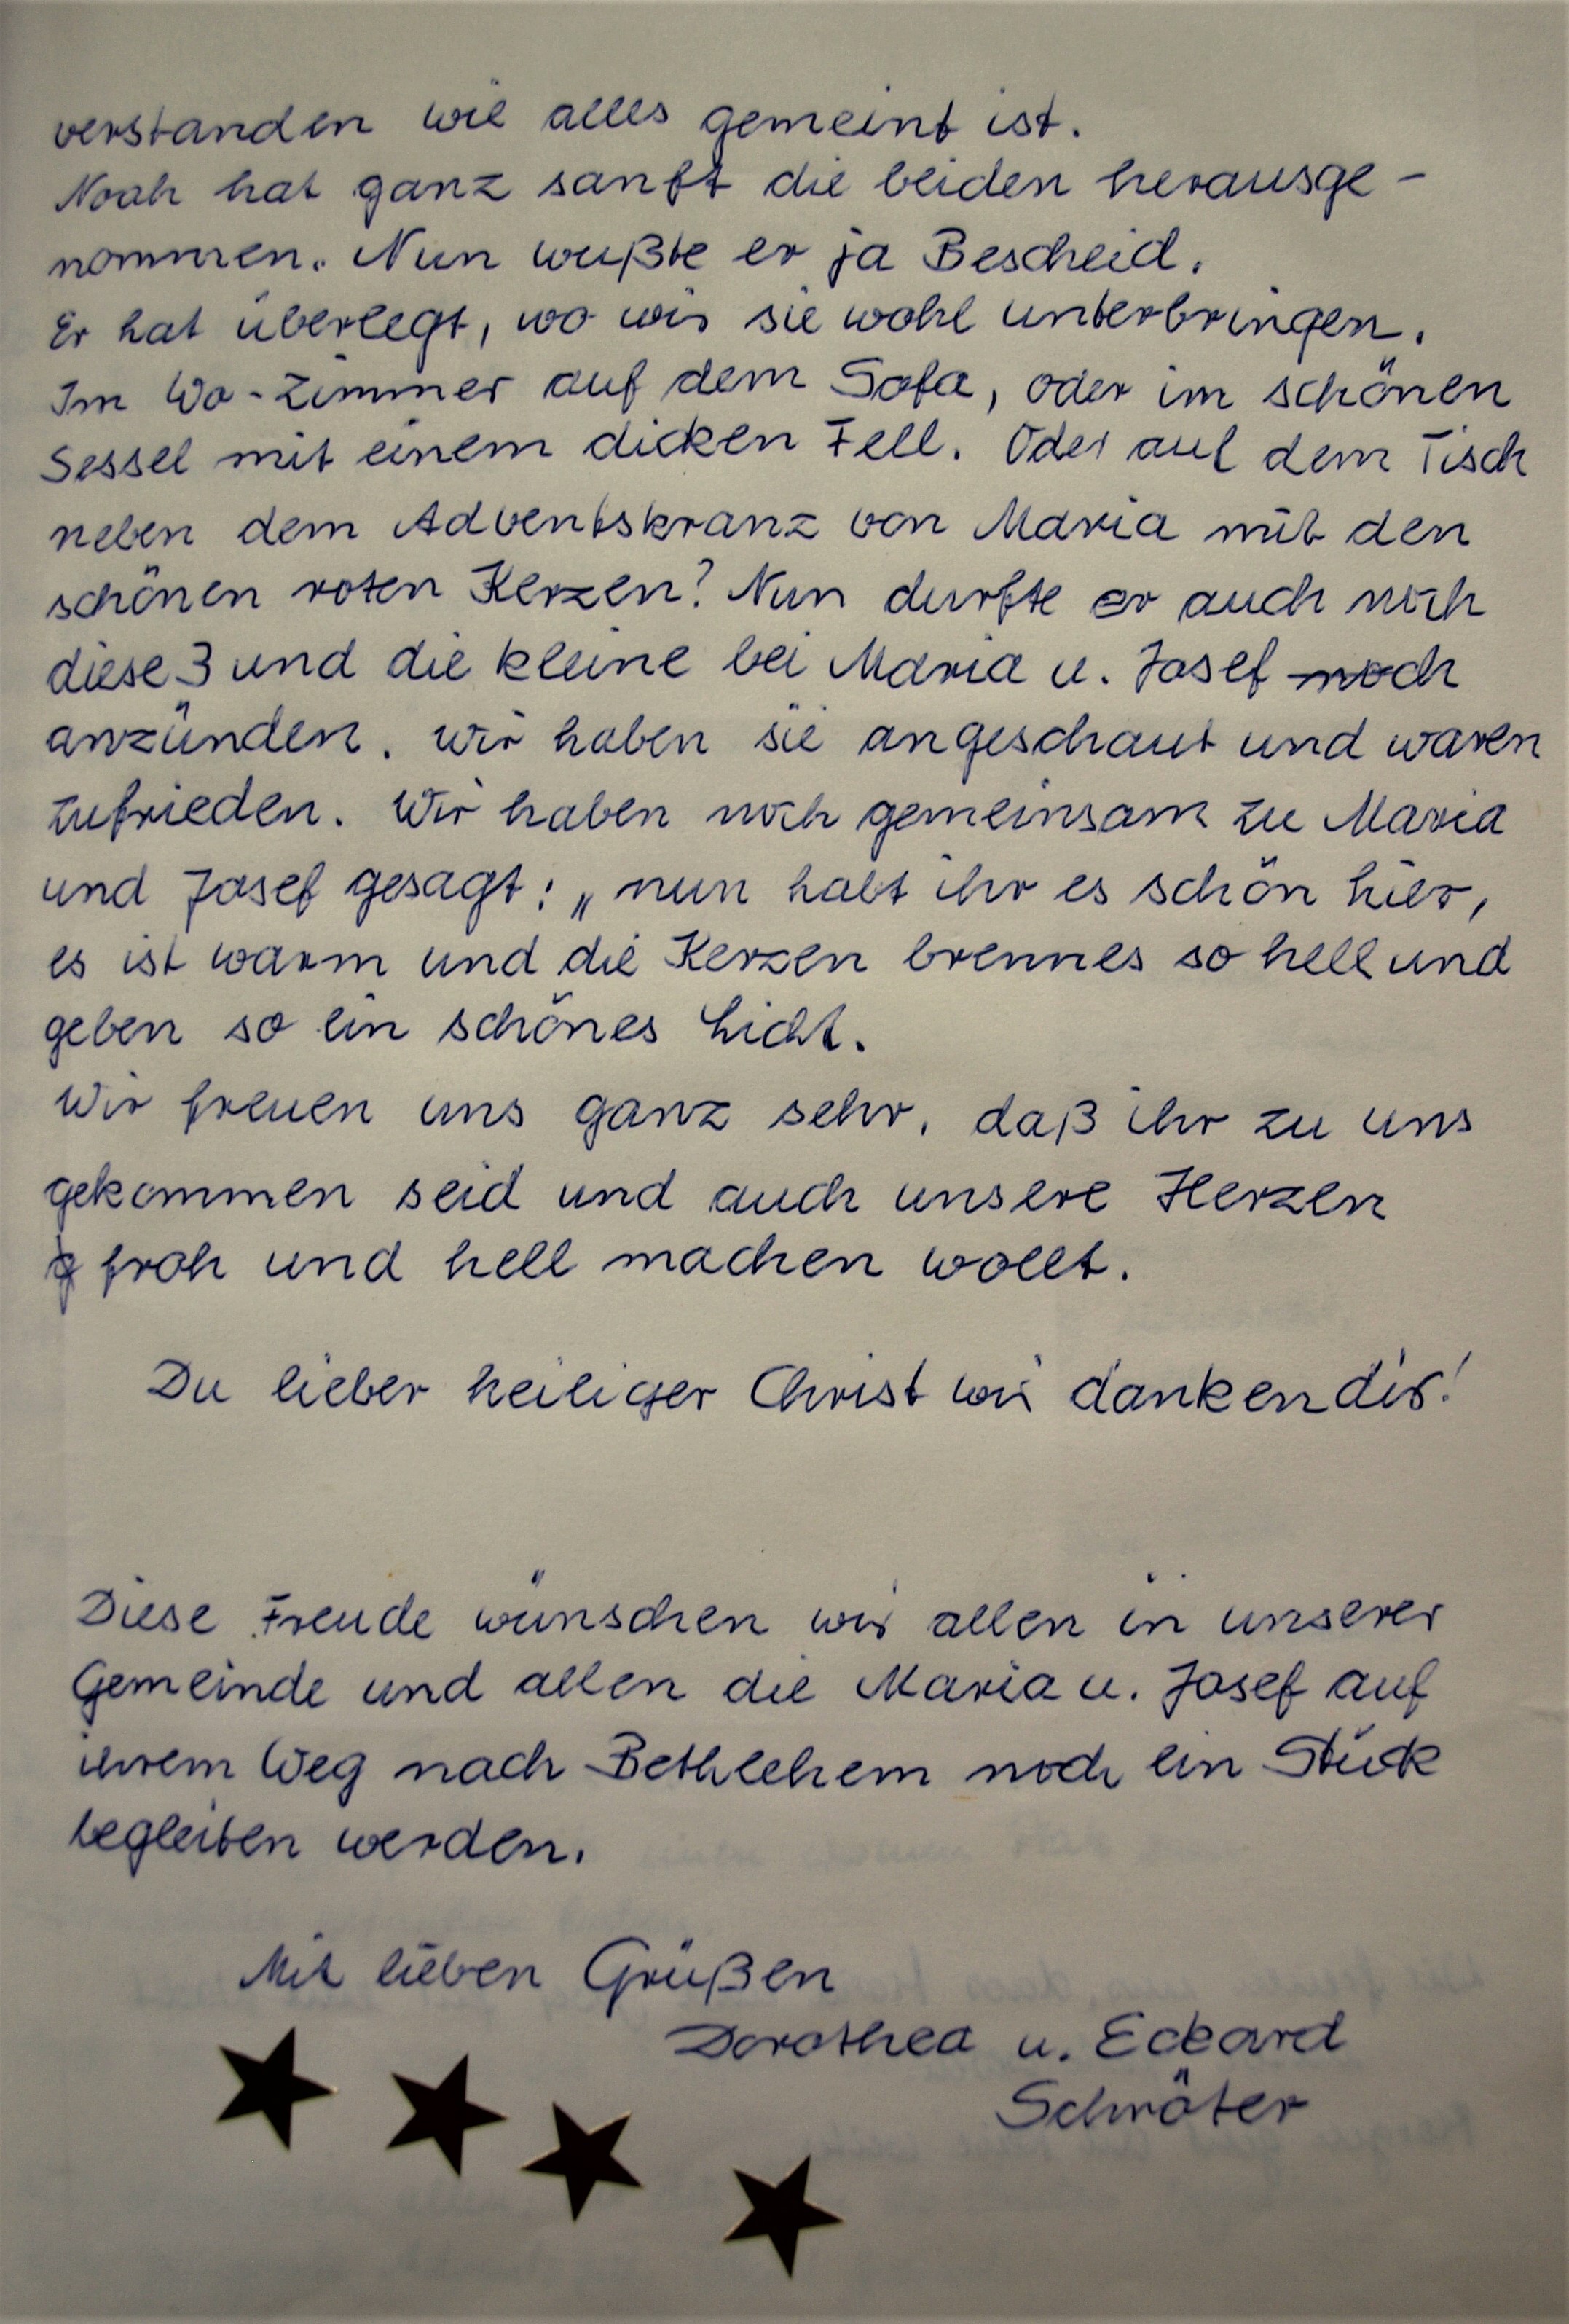 verstanden wie alles gemeint ist.
Noah hat ganz sanft die beiden herausge-
nommen. Nun wußte er ja Bescheid.
Er hat überlegt, wo wir sie wohl unterbringen.
Im Wo-Zimmer auf dem Sofa, oder im schönen
Sessel mit einem dicken Fell. Oder auf dem Tisch
neben dem Adventskranz von Maria mit den
schönen roten Kerzen? Nun durfte er auch noch
diese 3 und die kleine bei Maria u. Josef noch
anzünden. Wir haben sie angeschaut und waren
zufrieden. Wir haben noch gemeinsam zu Maria
und Josef gesagt: „nun habt ihr es schön hier,
es ist warm und die Kerzen brennes so hell und
geben so ein schönes Licht.
Wir freuen uns ganz sehr, daß ihr zu uns
gekommen seid und auch unsere Herzen
froh und hell machen wollt.
Du lieber heiliger Christ wir danken dir!
Diese Freude wünschen wir allen in unserer
Gemeinde und allen die Maria u. Josef auf
ihrem Weg nach Bethlehem noch ein Stück
begleiten werden.
Mit lieben Grüßen
Dorothea u. Eckard
Schröter